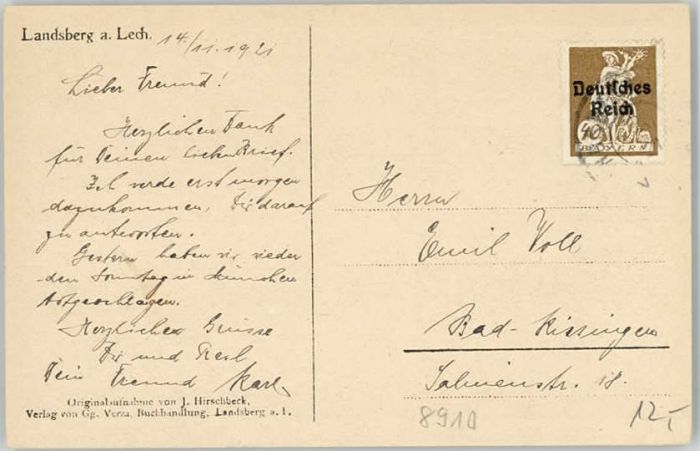 Landsberg a. Lech. 14/11. 1921
Lieber Freund!
Herzlichen Dank
für Deinen lieben Brief.
Ich werde erst morgen
dazukommen, Dir darauf
zu antworten.
Gestern haben wir wieder
den Sonntag in München
totgeschlagen.
Herzliche Grüsse
Dir und Resl
Dein Freund Karl.
Originalaufnahme von J. Hirschbeck,
Verlag von Gg. Verza, Buchhandlung, Landsberg a. L.
Deutsches
Reich
40
BAYERN
Herrn
Emil Voll
Bad-Kissingen
Salinenstr. 18.
8910
12,-